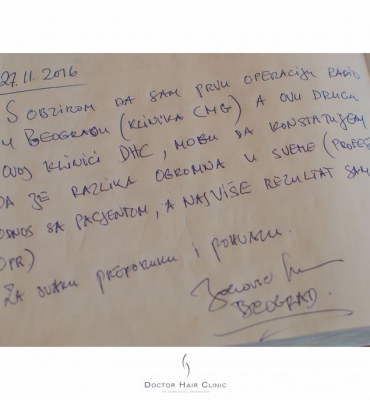 27.11.2016
S OBZIROM DA SAM PRVU OPERACIJU RADIO
U BEOGRADU (KLINIKA CMG) A OVU DRUGU
OVOJ KLINICI DHC, MOGU DA KONSTATUJEM
DA JE RAZLIKA OGROMNA U SVEMU (PROFES
ODNOS SA PACJENTOM, A NAJVIŠE REZULTAT SAM
OPR)
ZA SVAKU PREPORUKU I POHVALU.
BEOGRAD.
DOCTOR HAIR CLINIC